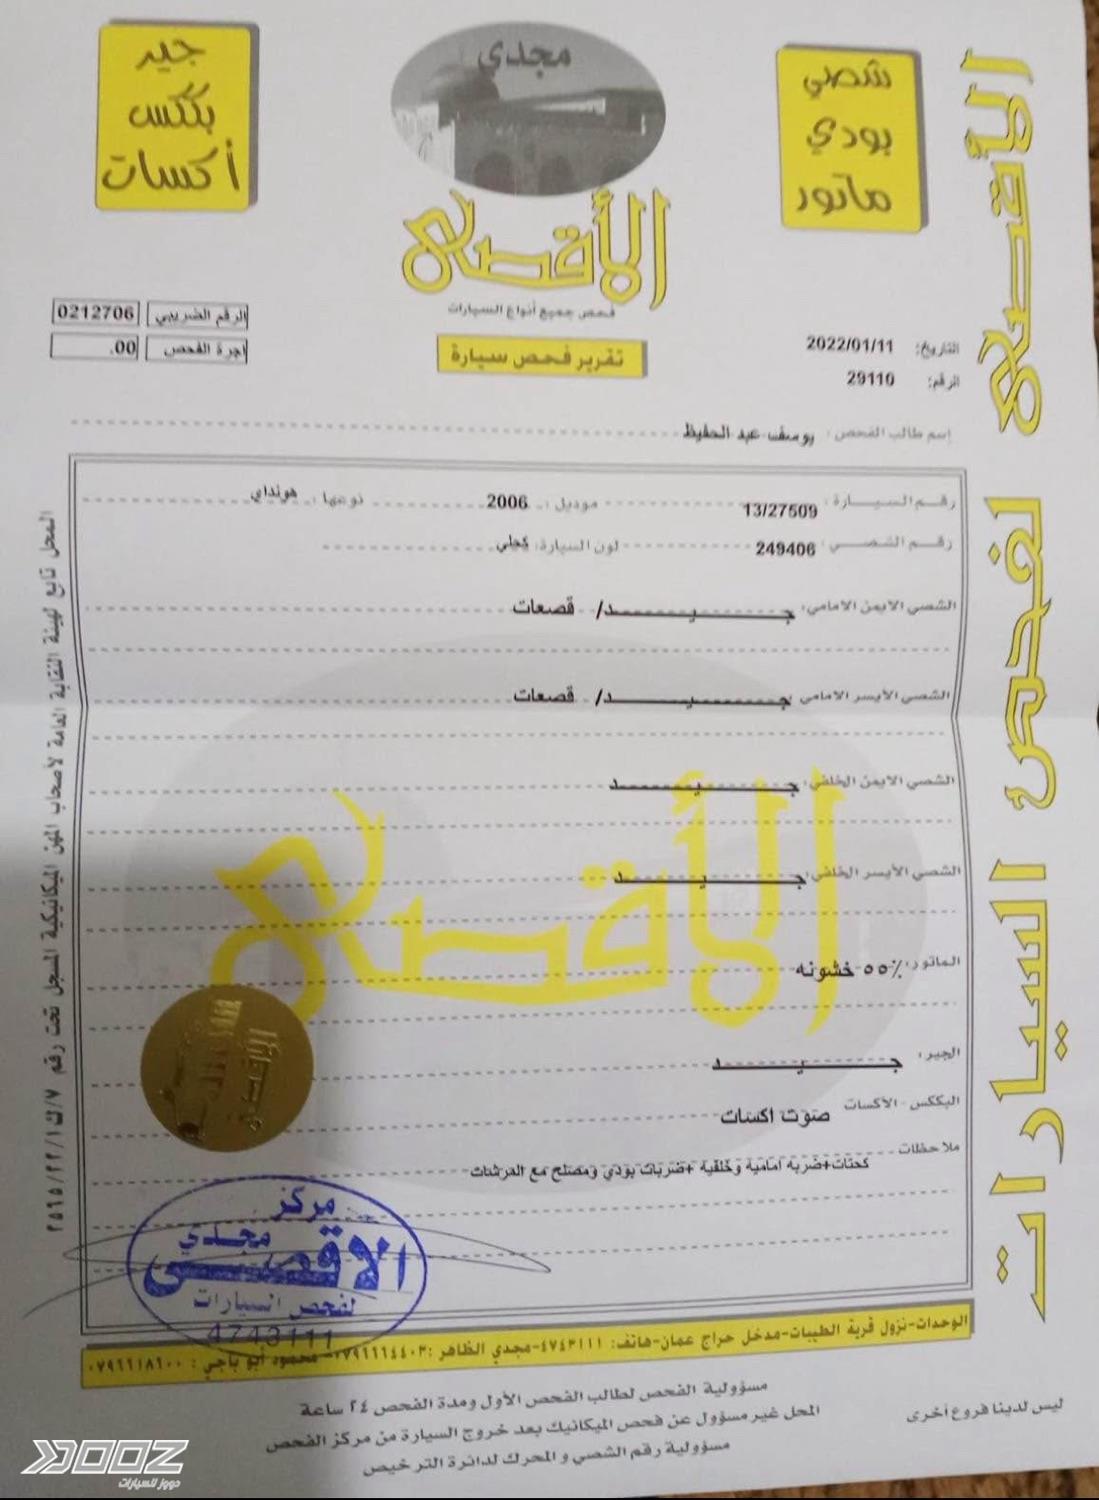 جير
بككس
أكسات
مجدي
الأقصى
فحص جميع أنواع السيارات
شصي
بودي
ماتور
الأقصى لفحص السيارات
الرقم الضريبي 0212706
اجرة الفحص .00
تقرير فحص سيارة
التاريخ: 2022/01/11
الرقم: 29110
إسم طالب الفحص: يوسف عبد الحفيظ
رقم السيارة: 13/27509 موديل: 2006 نوعها: هونداي
رقم الشصي: 249406 لون السيارة: كحلي
الشصي الايمن الامامي: جيد/ قصعات
الشصي الأيسر الامامي: جيد/ قصعات
الشصي الايمن الخلفي: جيد
الشصي الأيسر الخلفي: جيد
الأقصى
الماتور: ٥٥٪ خشونه
الجير: جيد
البككس - الأكسات صوت اكسات
ملاحظات كحتات+ضربه امامية وخلفية +ضربات بودي ومصلح مع الفرشات
المحل تابع لهيئة النقابة العامة لأصحاب المهن الميكانيكية المسجل تحت رقم ٧/ك١/٢٢/٢٥٦٥
مركز
مجدي
الاقصى
لفحص السيارات
4743111
الوحدات-نزول قرية الطيبات-مدخل حراج عمان-هاتف: ٤٧٤٣١١١-مجدي الظاهر: ٠٧٩٦٦٦٤٤٠٣-محمود أبو باجي: ٠٧٩٦٦١٨٦٠٠
مسؤولية الفحص لطالب الفحص الأول ومدة الفحص ٢٤ ساعة
المحل غير مسؤول عن فحص الميكانيك بعد خروج السيارة من مركز الفحص
مسؤولية رقم الشصي و المحرك لدائرة الترخيص
ليس لدينا فروع أخرى
دووز للسيارات